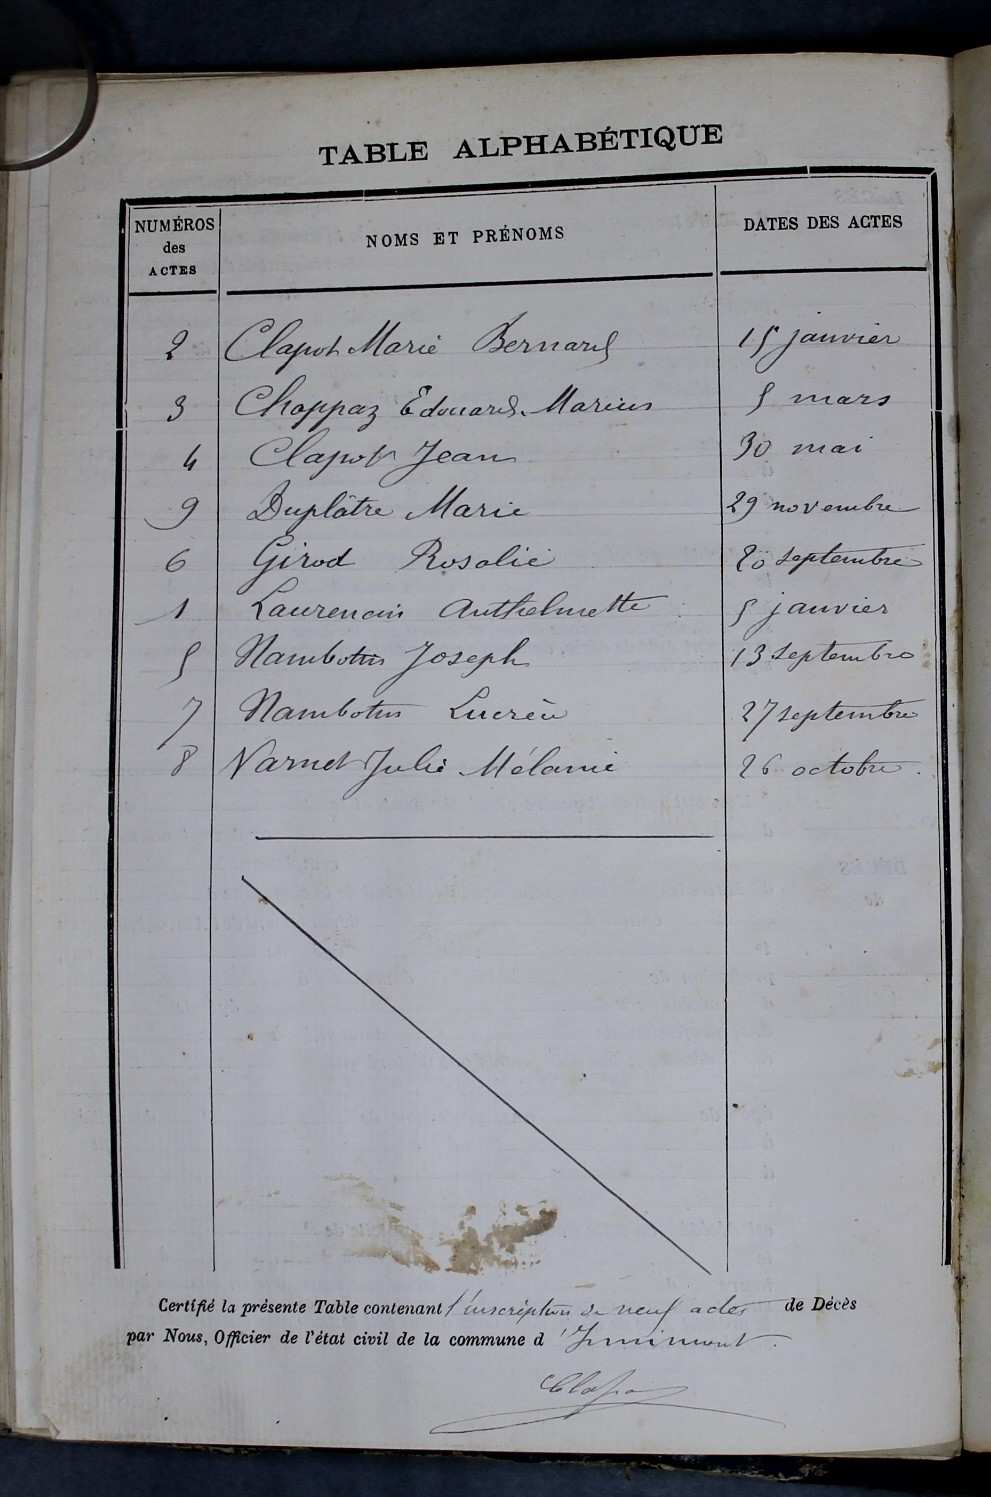 TABLE ALPHABÉTIQUE
NUMÉROS des ACTES NOMS ET PRÉNOMS DATES DES ACTES
2 Clapot Marie Bernard 15 janvier
3 Chappaz Edouard Marius 5 mars
4 Clapot Jean 30 mai
9 Duplâtre Marie 29 novembre
6 Girod Rosalie 20 septembre
1 Laurencin Anthelmette 5 janvier
5 Nambotin Joseph 13 septembre
7 Nambotin Lucrèce 27 septembre
8 Varnet Julie Mélanie 26 octobre.
Certifié la présente Table contenant l'inscription de neuf actes de Décès
par Nous, Officier de l'état civil de la commune d'Izinimont.
Clapot